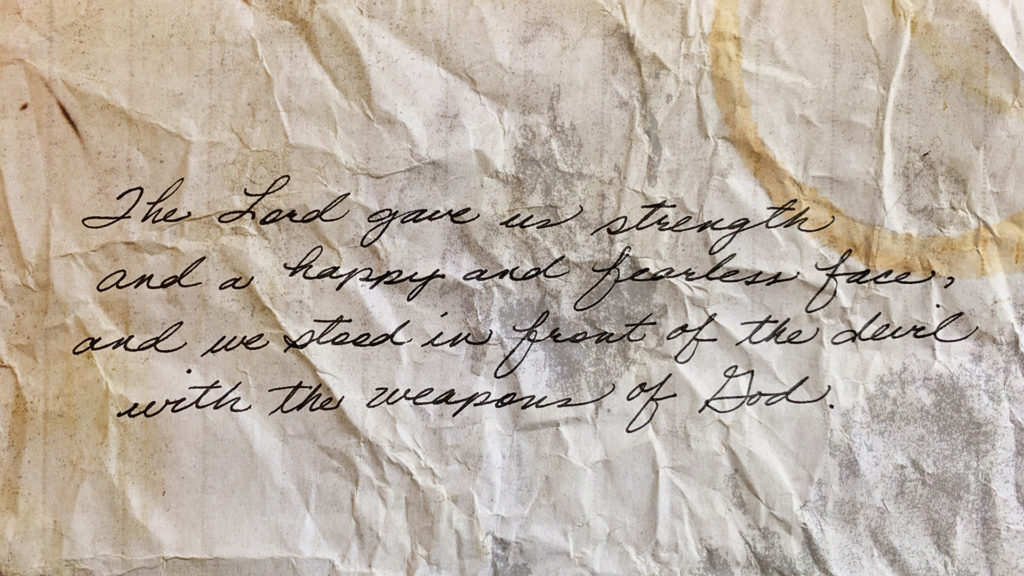 The Lord gave us strength
and a happy and fearless face,
and we stood in front of the devil
with the weapons of God.